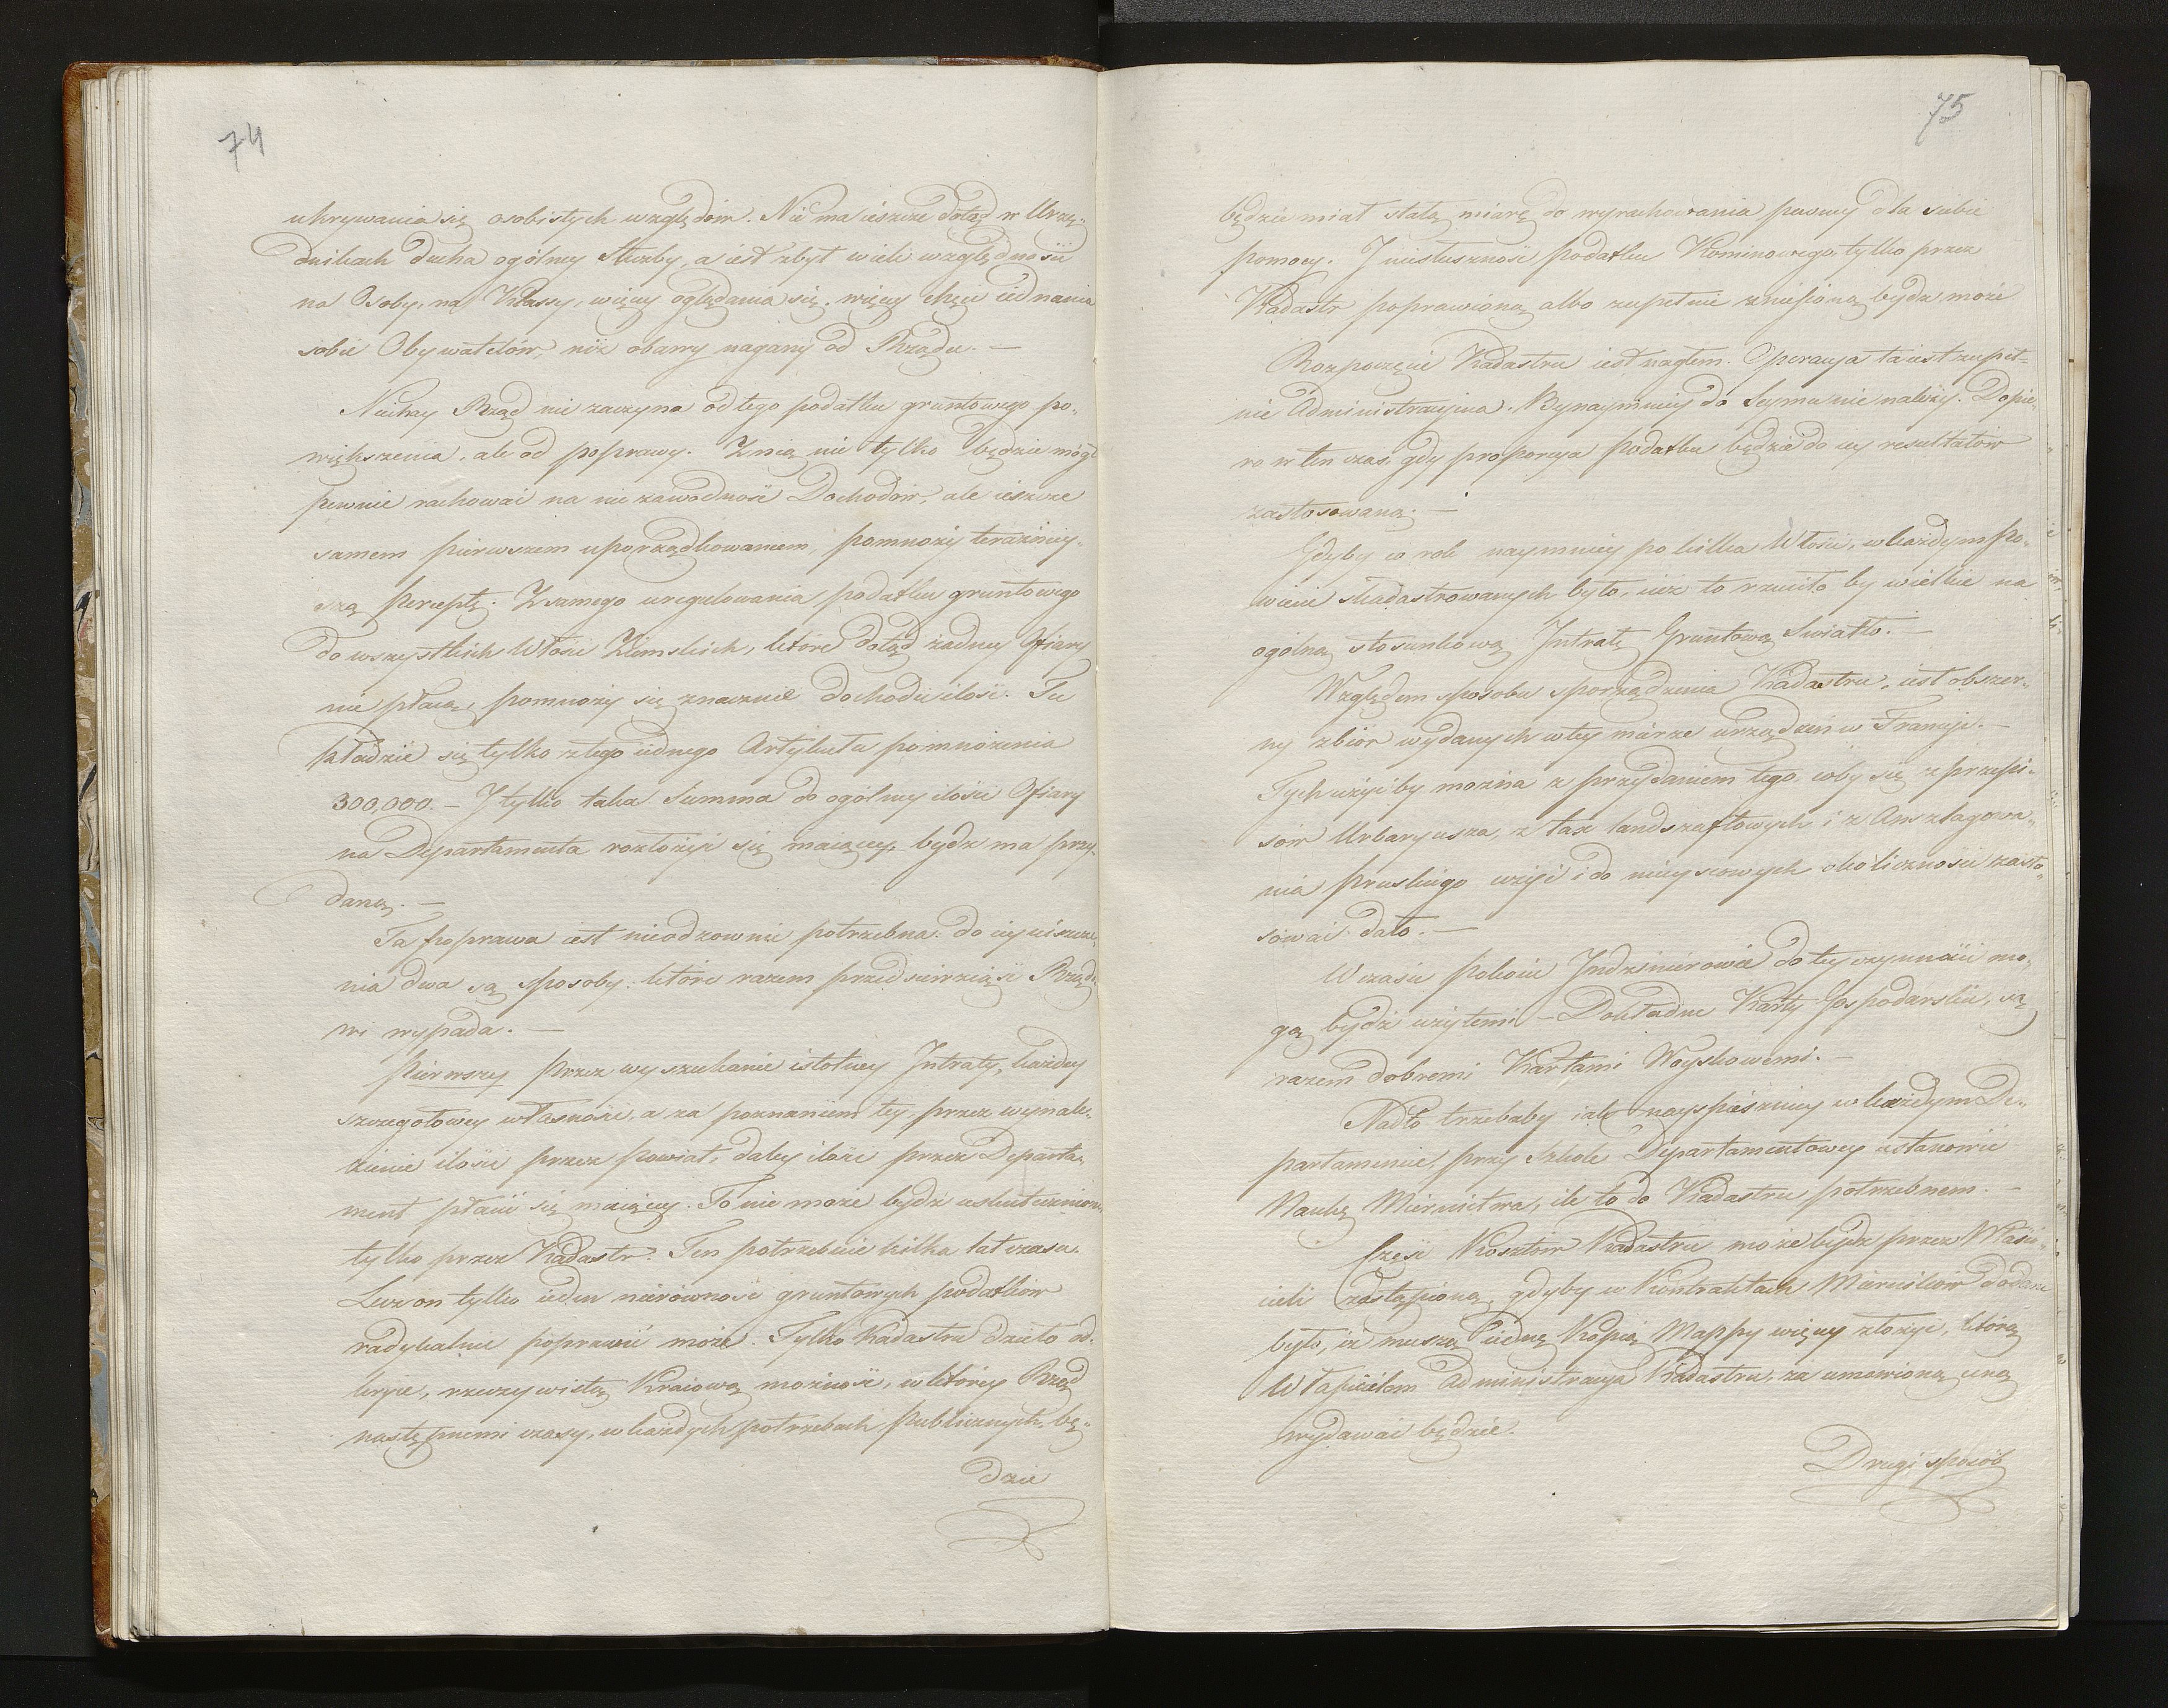 74
ukrywania się osobistych względów. Nie ma ieszcze dotąd w Urzę„
dnikach ducha ogólney służby, a iest zbyt wiele względności
na Osoby, na Klassy, więcey oglądania się, więcey chęci iednania
sobie Obywatelów, niż obawy nagany od Rządu. —
Niechay Rząd nie zaczyna od tego podatku gruntowego po„
większenia, ale od poprawy. Z nią nie tylko będzie mógł
pewnie rachować na nie zawodność Dochodów, ale ieszcze
samem pierwszem uporządkowaniem, pomnoży teraźniey„
szą Perceptę. Z samego uregulowania podatku gruntowego
do wszystkich Włości Ziemskich, które dotąd żadney Ofiary
nie płacą, pomnoży się znacznie dochodu ilość. Tu
kładzie się tylko z tego iednego Artykułu pomnożenia
300,000. — I tylko taka Summa do ogólney ilości Ofiary
na Departamenta rozłożyć się maiącey, bydz ma przy„
daną. —
Ta poprawa iest nieodzownie potrzebna. do iey uiszcze„
nia dwa są sposoby: które razem przedsiewziąść Rządo„
wi wypada. —
Pierwszy przez wyszukanie istotney Intraty, każdey
szczegółowey własności, a za poznaniem tey, przez wynale„
zienie ilości przez Powiat, daley ilości przez Departa„
ment płacić się maiącey. To nie może bydz uskutecznione
tylko przez Kadastr. Ten potrzebuie kilka lat czasu.
Lecz on tylko ieden nierówność gruntowych podatków
radykalnie poprawić może. Tylko Kadastru dzieło od„
kryie, rzeczywistą Kraiową możność, w którey Rząd
następnemi czasy, w każdych potrzebach Publicznych, bę„
dzie
75
będzie miał stałą miarę do wyrachowania pewney dla siebie
pomocy. I niesłuszność podatku Kominowego, tylko przez
Kadastr poprawioną albo zupełnie zniesioną bydz może
Rozpoczęcie Kadastru iest nagłem. Operacya ta iest zupeł=
nie Administracyina. Bynaymniey do Seymu nie należy. Dopie„
ro w ten czas, gdy proporcya podatku będzie do iey resultatów
zastosowaną. —
Gdyby co rok naymniey po kilka Włości, w każdym Po„
wiecie skadastrowanych było, iuż to rzuciło by wielkie na
ogólną stosunkową Intratę Gruntową Światło. —
Względem sposobu sporządzenia Kadastru, iest obszer„
ny zbiór wydanych w tey mierze urządzeń w Francyi. —
Tych użyć by można z przydaniem tego, coby się z przepi„
sów Urbaryusza, z tax landszaftowych i z Anszlagowa„
nia Pruskiego użyć i do mieyscowych okoliczności zasto„
sować dało. —
W czasie Pokoiu Indzinierowie do tey czynności mo„
gą bydź użytemi — Dokładne Karty Gospodarskie, są
razem dobremi Kartami Woyskowemi. —
Nadto trzebaby iak nayspieszniey w każdym De„
partamencie, przy Szkole Departamentowey ustanowić
Naukę Miernictwa, ile to do Kadastru potrzebnem. —
Część Kosztów Kadastru może bydz przez Właści„
cieli zastąpioną, gdyby w Kontraktach Mierników dodane
było, iż muszą iedną Kopią Mappy więcey złożyć, którą
Właścicielom Administracya Kadastru, za umówioną ceną
wydawać będzie.
Drugi sposób